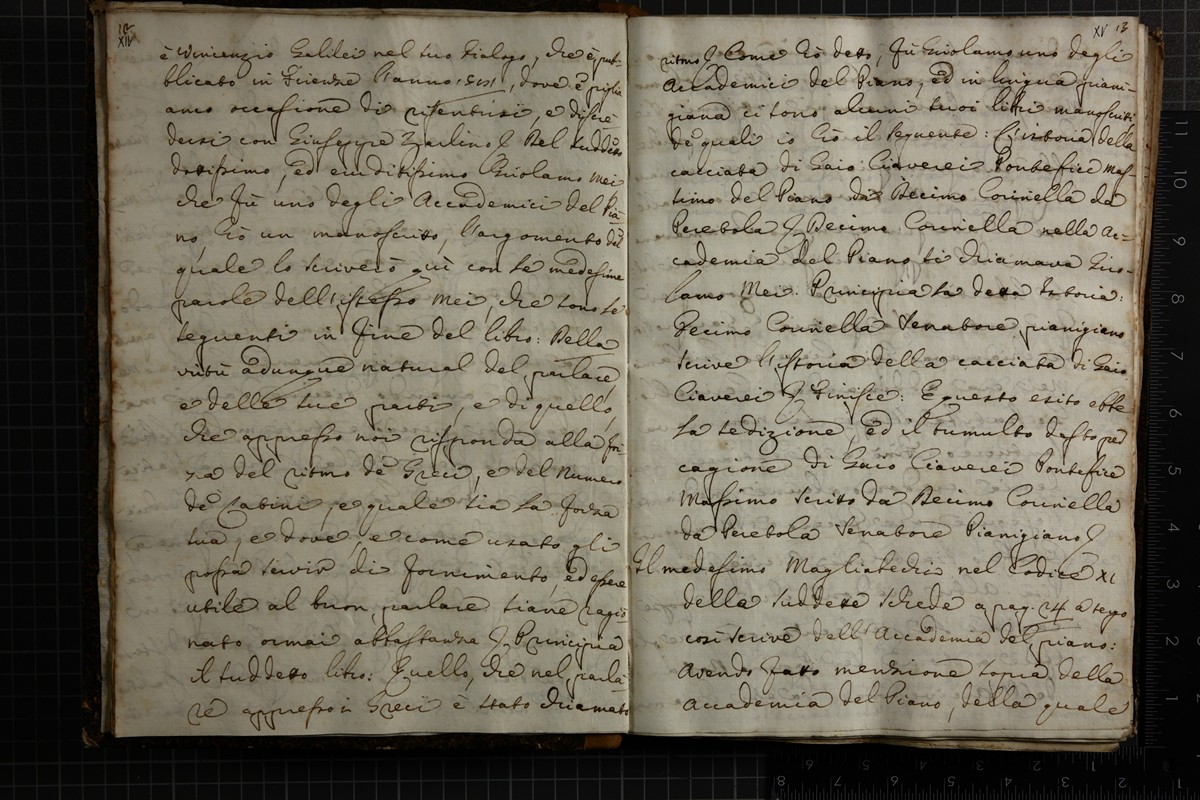 XIV
è Vincenzio Galilei nel suo Dialogo, che è pub-
blicato in Firenze l'anno 1581, dove è piglia
anco occasione di risentirsi, e difen
dersi con Giuseppe Zarlino. Del suddetto
dottissimo, ed eruditissimo Girolamo Mei
che fù uno degli Accademici del Pia-
no, hò un manoscritto, l'argomento del
quale lo scriverò quì con le medesime
parole dell'istesso Mei, che sono le
seguenti in fine del libro: Della
virtù adunque natural del parlare
e delle sue parti, e di quello,
che appresso noi risponda alla for
za del ritmo de Greci, e del Numero
de Latini, e quale sia la forza
sua, e dove, e come usato gli
possa servir di fornimento, ed essere
utile al buon parlare siane ragio
nato ormai abbastanza. Principia
il suddetto libro: Quello, che nel parla-
re appresso i Greci è stato chiamato
XV 13
ritmo. Come hò detto, fù Girolamo uno degli
Accademici del Piano, ed in lingua piani-
giana ci sono alcuni suoi libri manoscritti
de quali io hò il seguente: L'istoria della
cacciata di Gaio Ciaverei Pontefice Mas
simo del Piano di Decimo Corinella da
Peretola. Decimo Corinella nella Ac-
cademia del Piano si chiamava Giro-
lamo Mei. Principia la detta Istoria:
Decimo Corinella Senatore pianigiano
scrive l'istoria della cacciata di Gaio
Ciaverei. Finisce: E questo esito ebbe
la sedizione, ed il tumulto desto per
cagione di Gaio Ciaverei Pontefice
Massimo scritto da Decimo Corinella
da Peretola Senatore Pianigiano.
Il medesimo Magliabechi nel Codice XI
della suddette schede a pag. 24 a tergo
così scrive dell'Accademia del piano:
Avendo fatto menzione sopra della
Accademia del Piano, della quale